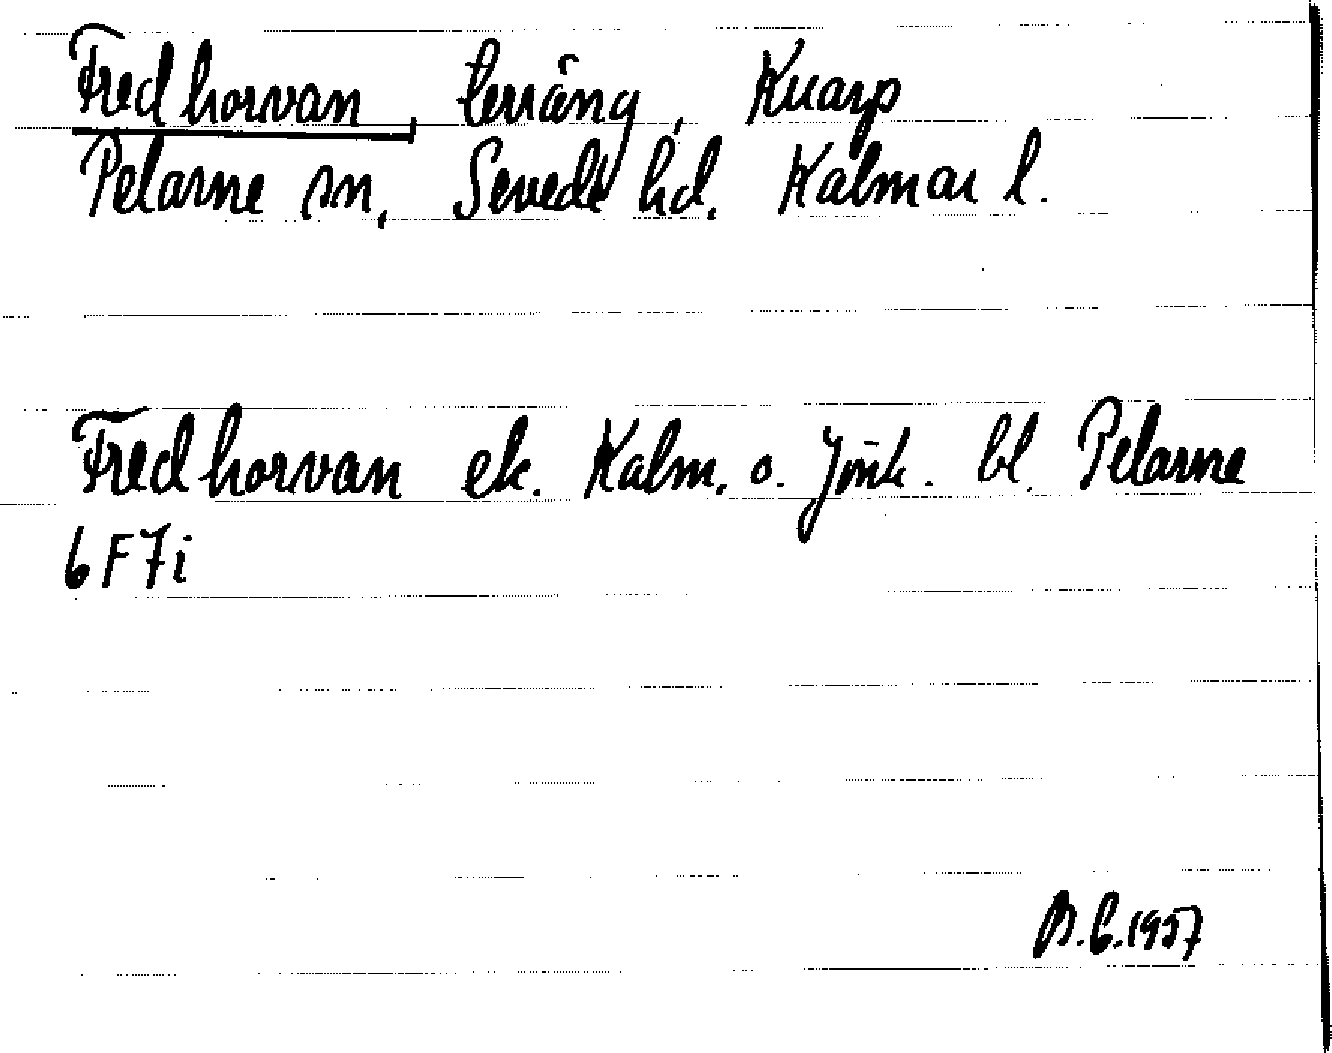 Fredhorvan, terräng, Knarp
Pelarne sn, Sevede hd. Kalmar l.
Fredhorvan ek. Kalm. o. Jönk. bl. Pelarne
6F7i
B.G.1957